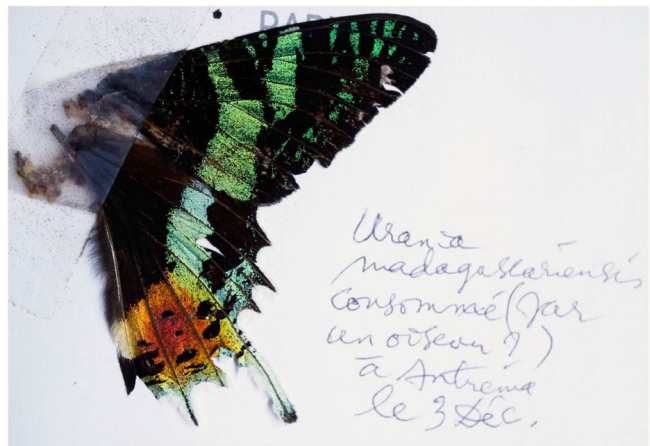 PARI
Urania
madagascariensis
consommé (par
un oiseau ?)
à Antrema
le 3 Déc.